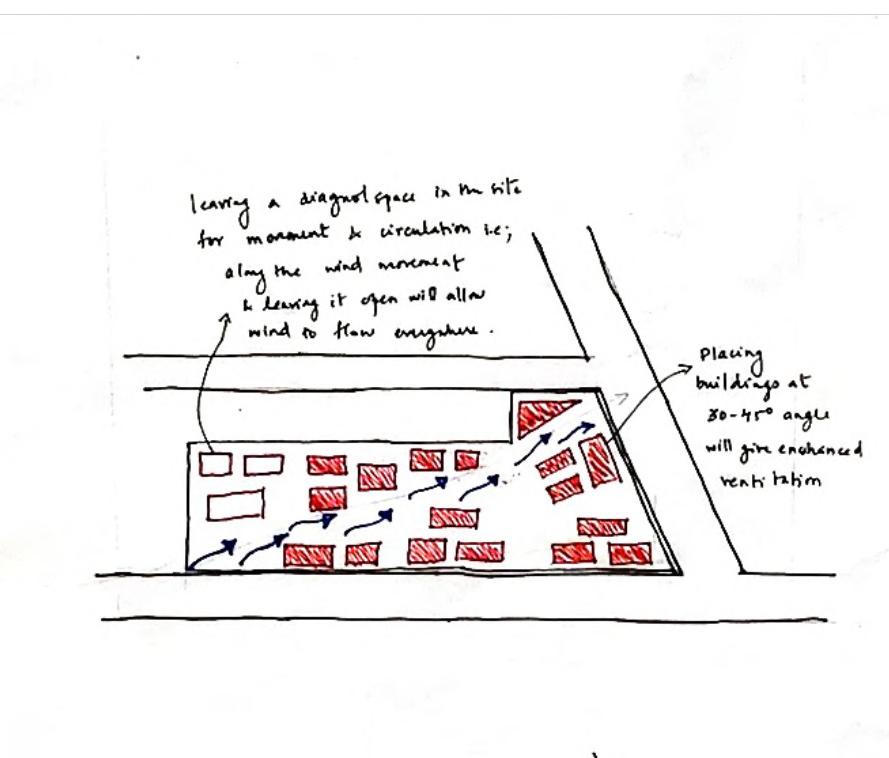 leaving a diagnol space in the site
for movment & circulation i.e;
along the wind movement
& leaving it open will allow
wind to flow everywhere.
Placing
buildings at
30-45° angle
will give enchanced
ventilation